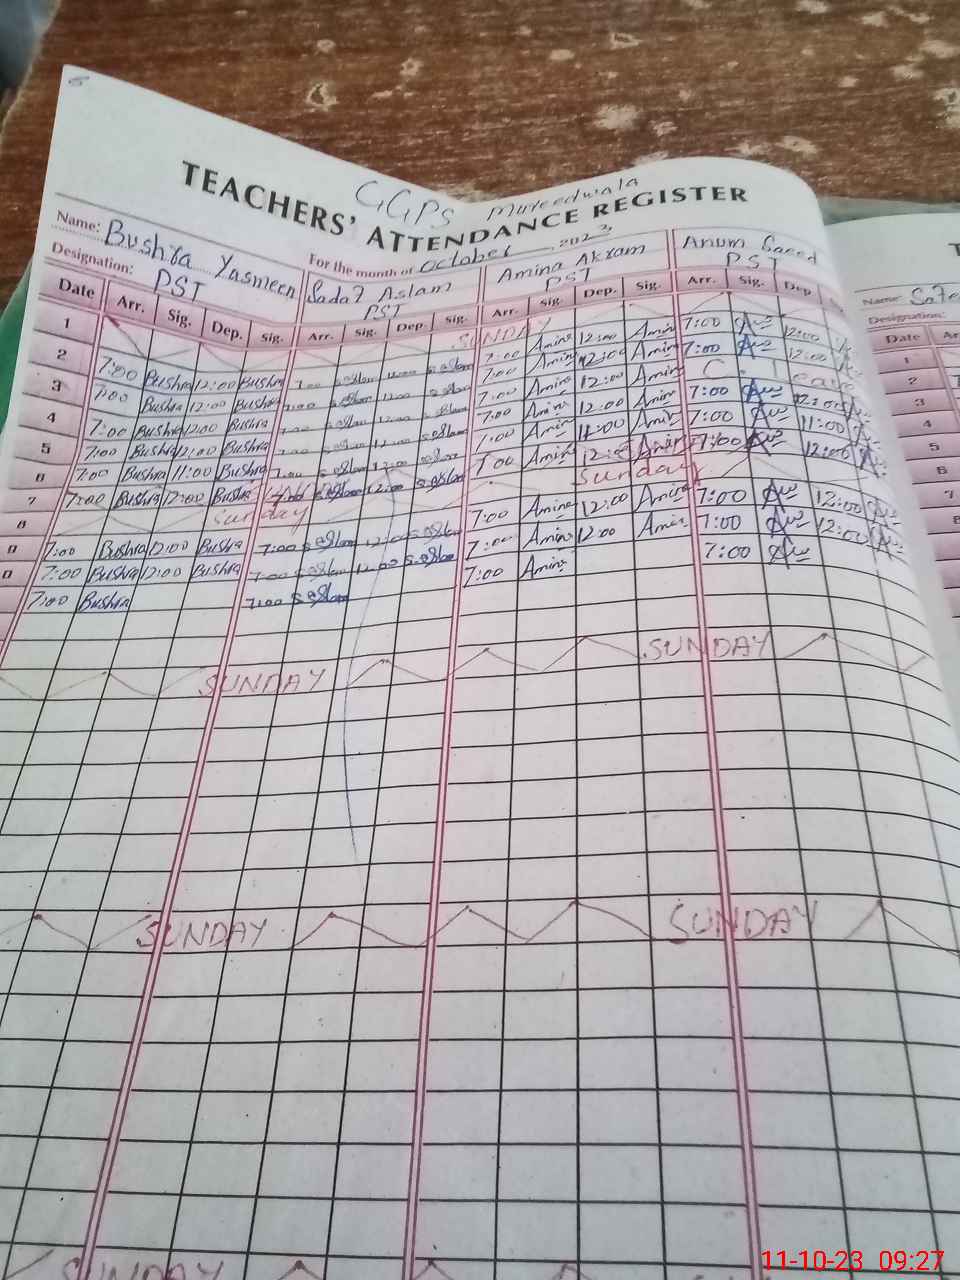 GGPS Mureedwala
TEACHERS' ATTENDANCE REGISTER
Name: Bushra Yasmeen For the month of October 2023
Sadaf Aslam Amina Akram Anum Saeed
Designation: PST PST PST PST
Date Arr. Sig. Dep. Sig. Arr. Sig. Dep. Sig. Arr. Sig. Dep. Sig. Arr. Sig. Dep
1 SUNDAY
2 7:00 Bushra 12:00 Bushra 7:00 S.aslam 12:00 S.aslam 7:00 Amina 12:00 Amina 7:00 12:00
3 7:00 Bushra 12:00 Bushra 7:00 S.aslam 12:00 S.aslam 7:00 Amina 12:00 Amina 7:00 12:00
4 7:00 Bushra 12:00 Bushra 7:00 S.aslam 12:00 S.aslam 7:00 Amina 12:00 Amina Leave
5 7:00 Bushra 12:00 Bushra 7:00 S.aslam 12:00 S.aslam 7:00 Amina 12:00 Amina 7:00 12:00
6 7:00 Bushra 11:00 Bushra 7:00 S.aslam S.aslam 7:00 Amina 11:00 Amina 7:00 11:00
7 7:00 Bushra 12:00 Bushra 7:00 S.aslam 12:00 S.aslam 7:00 Amina 12:00 Amina 7:00 12:00
8 Sunday Sunday
7:00 Bushra 12:00 Bushra 7:00 S.aslam 12:00 S.aslam 7:00 Amina 12:00 Amina 7:00 12:00
7:00 Bushra 12:00 Bushra 7:00 S.aslam 12:00 S.aslam 7:00 Amina 12:00 Amina 7:00 12:00
7:00 Bushra 7:00 S.aslam 7:00 Amina 7:00
SUNDAY SUNDAY
SUNDAY SUNDAY
SUNDAY
Name:
Designation:
Date
1
2
3
4
5
6
7
11-10-23 09:27